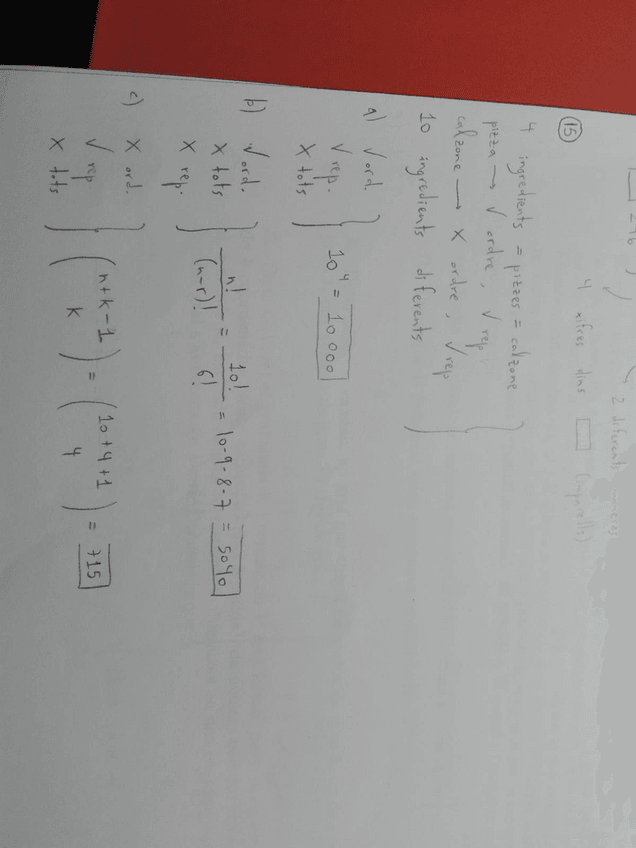 4 xifres dins □
2 diferents
15
4 ingredients = pizzes = calzone
pizza → √ ordre, √ rep
calzone → X ordre, √ rep
10 ingredients diferents
a) √ ord
√ rep.
X tots
10⁴ = 10 000
b) √ ord.
X tots
X rep.
n!/(n-r)! = 10!/6! = 10·9·8·7 = 5040
c) X ord.
√ rep
X tots
(n+k-1 / k) = (10+4+1 / 4) = 715